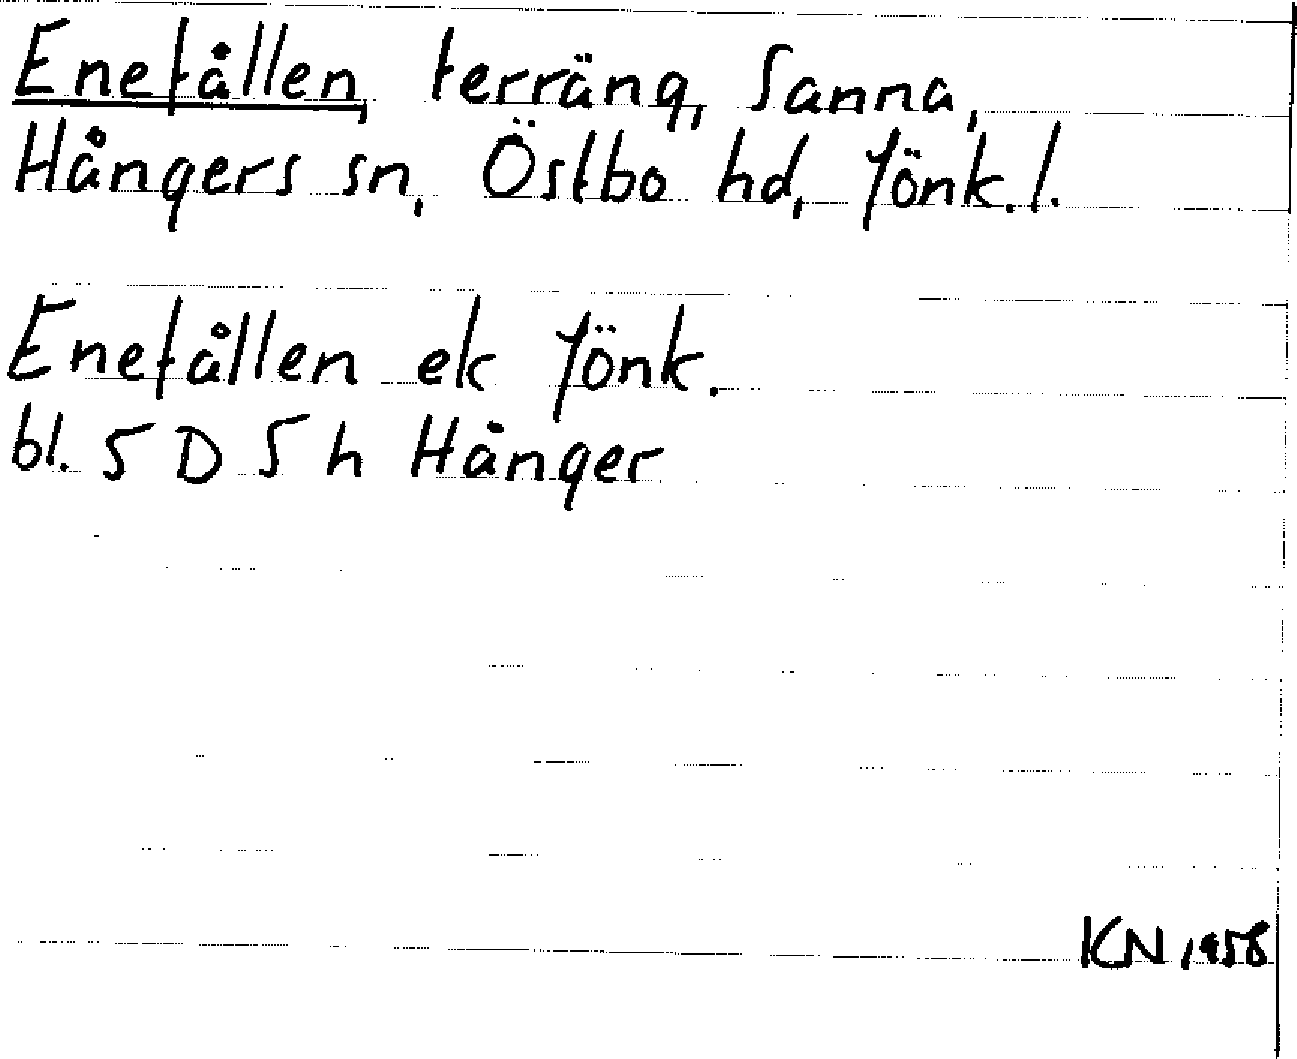 Enefållen, terräng, Sanna,
Hångers sn, Östbo hd, Jönk. l.
Enefållen ek Jönk.
bl. 5 D 5 h Hånger
KN 1958